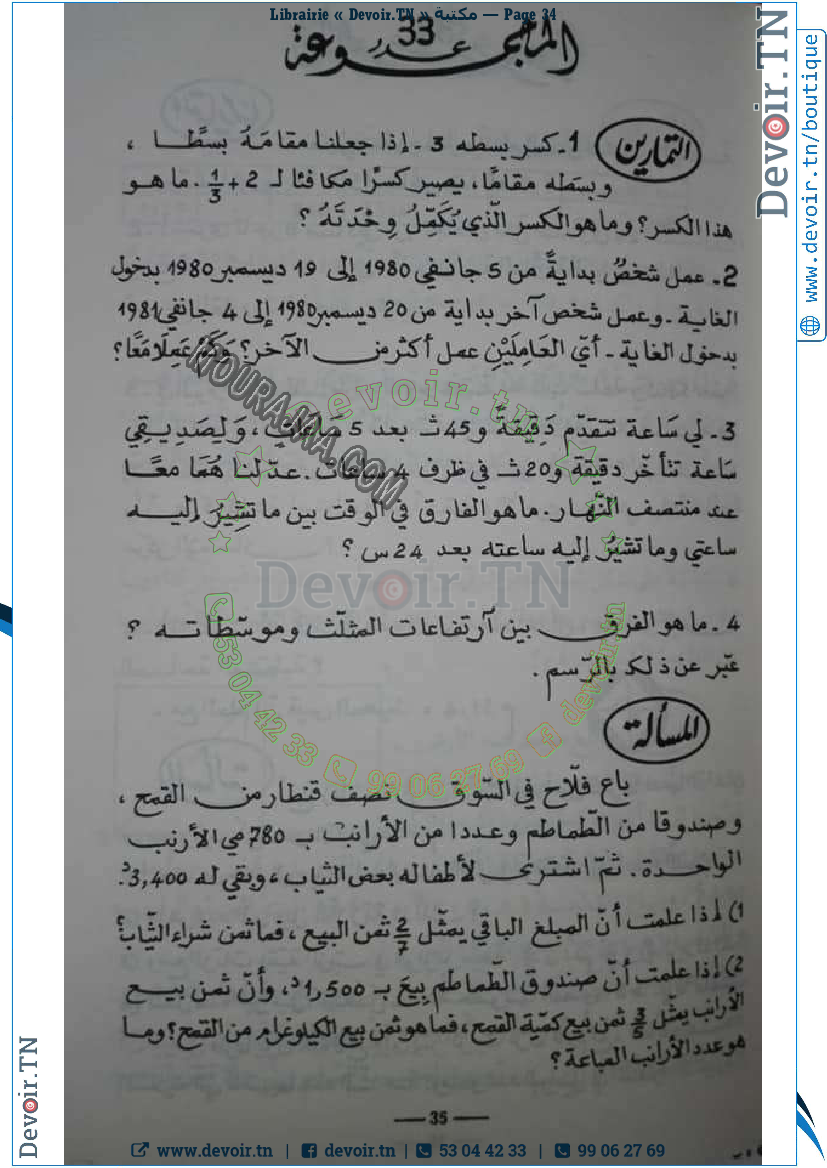 Librairie « Devoir.TN » مكتبة — Page 34
المجموعة
عدد 33
التمارين
1ـ كسر بسطه 3 ـ إذا جعلنا مقامَهُ بسطًا ،
وبسَطه مقامًا، يصير كسرًا مكافئا لـ 2 + 1/3 . ما هو
هذا الكسر؟ وما هو الكسر الّذي يُكَمِّلُ وِحْدَتَهُ ؟
2ـ عمل شخصٌ بدايةً من 5 جانفي 1980 إلى 19 ديسمبر 1980 بدخول
الغاية ـ وعمل شخص آخر بداية من 20 ديسمبر 1980 إلى 4 جانفي 1981
بدخول الغاية ـ أيّ العَامِلَيْنِ عمل أكثر من الآخر؟ وَكَمْ عَمِلَا مَعًا؟
3ـ لي سَاعة تتقدّم دَقِيقةً و45 ث بعد 5 سَاعَاتٍ، وَلِصَدِيقِي
سَاعة تتأخّر دقيقة و20 ث في ظرف 4 ساعات. عدّلنا هُمَا معًا
عند منتصف النّهار. ما هو الفارق في الوقت بين ما تشِيرُ إليه
ساعتي وما تشيرُ إليه ساعته بعد 24 س ؟
4 ـ ما هو الفرق بين آرتفاعات المثلّث وموسّطاته ؟
عبّر عن ذلك بالرّسم.
المسألة
باع فلّاح في السّوق نصف قنطار من القمح ،
وصندوقا من الطّماطم وعددا من الأرانب بـ 780 مي الأرنب
الواحدة. ثمّ اشترى لأطفاله بعض الثياب، وبقي له 3,400د.
1) إذا علمت أنّ المبلغ الباقي يمثّل 2/7 ثمن البيع ، فما ثمن شراء الثّياب؟
2) إذا علمت أنّ صندوق الطّماطم بِيعَ بـ 1,500د، وأنّ ثمن بيع
الأرانب يمثّل 3/5 ثمن بيع كمّية القمح ، فما هو ثمن بيع الكيلوغرام من القمح ؟ وما
هو عدد الأرانب المباعة ؟
— 35 —
www.devoir.tn | devoir.tn | 53 04 42 33 | 99 06 27 69
Devoir.TN
www.devoir.tn/boutique
Devoir.TN
NOURAJAA.COM
devoir.tn
Devoir.TN
53 04 42 33
99 06 27 69
devoir.tn